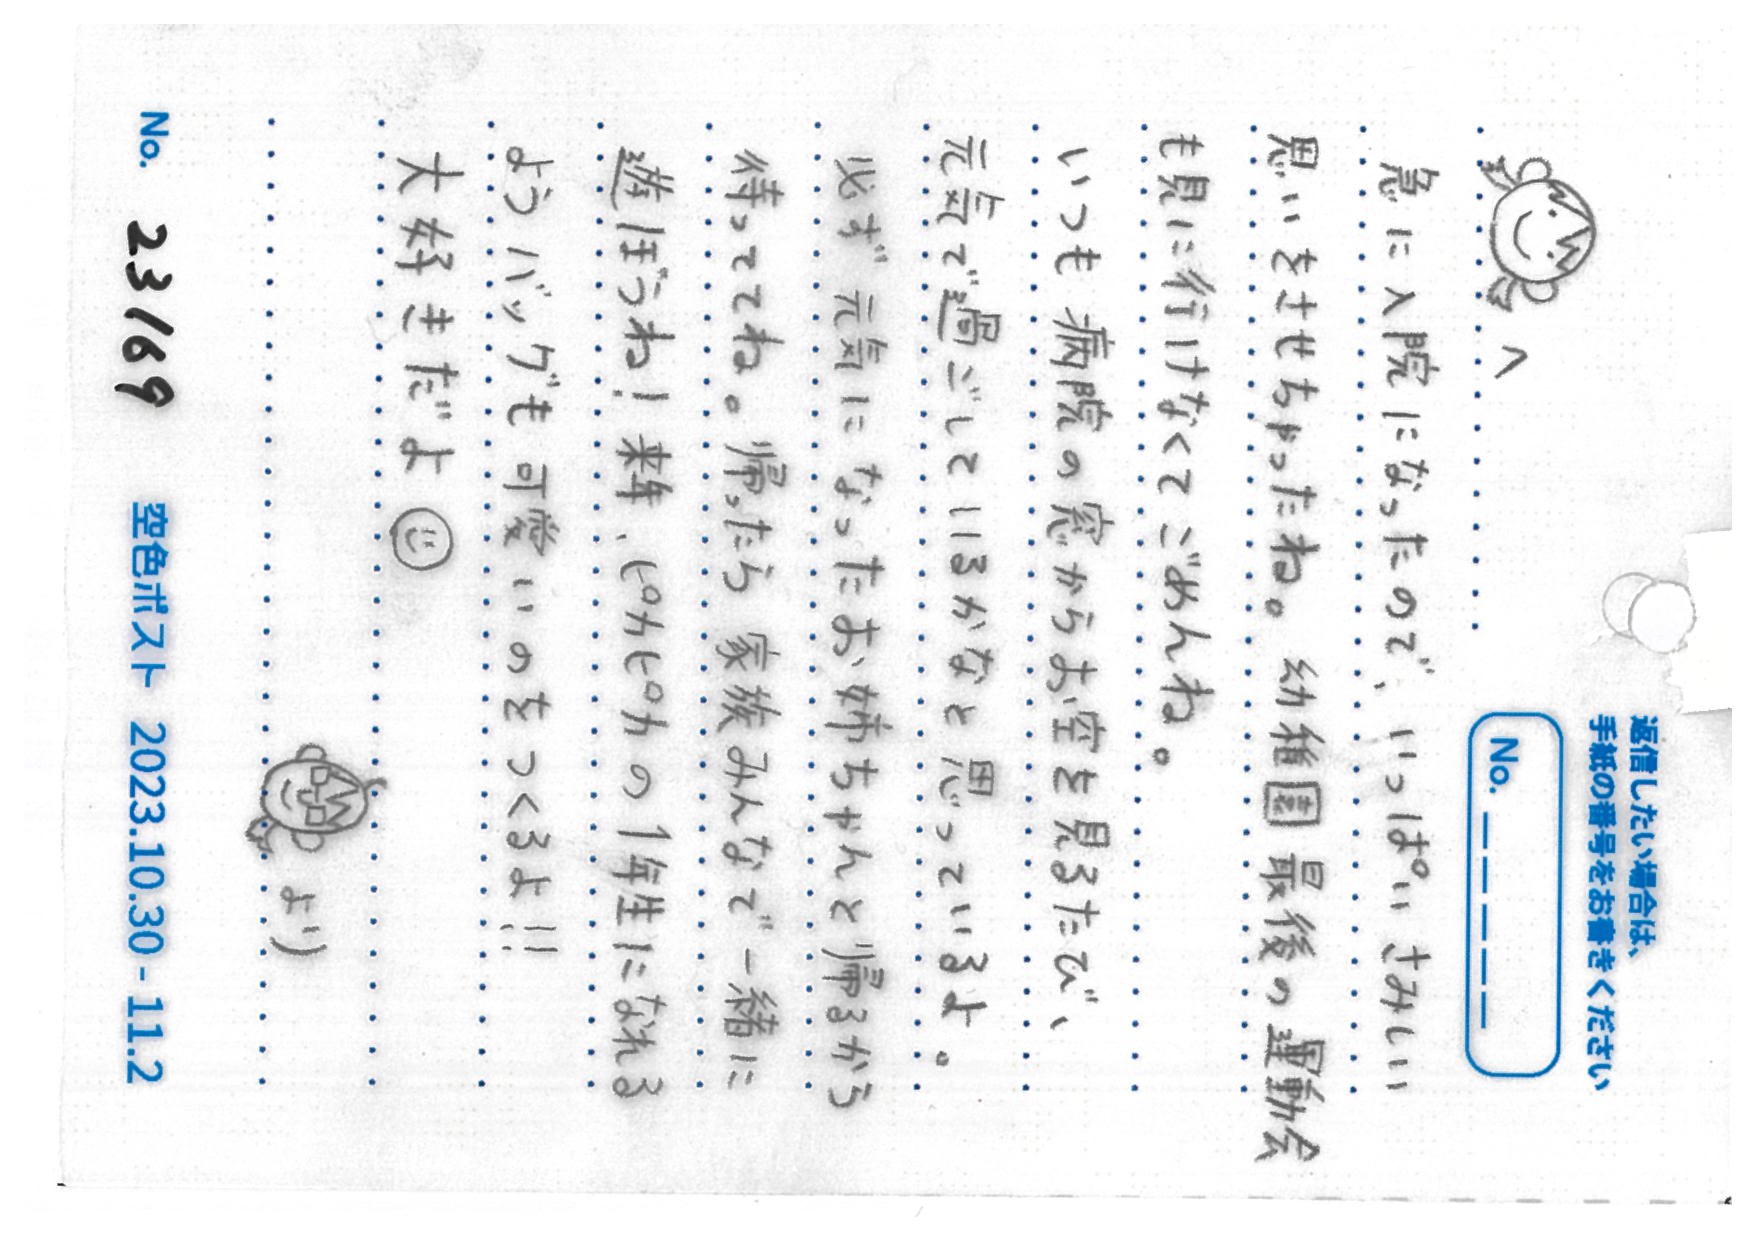 返信したい場合は、
手紙の番号をお書きください
No. _ _ _ _ _
へ
急に入院になったので、いっぱいさみしい
思いをさせちゃったね。幼稚園最後の運動会
も見に行けなくてごめんね。
いつも病院の窓からお空を見るたび、
元気で過ごしているかなと思っているよ。
必ず元気になったお姉ちゃんと帰るから
待っててね。帰ったら家族みんなで一緒に
遊ぼうね!来年、ピカピカの1年生になれる
ようバッグも可愛いのをつくるよ!!
大好きだよ
より
No. 23169 空色ポスト 2023.10.30 - 11.2